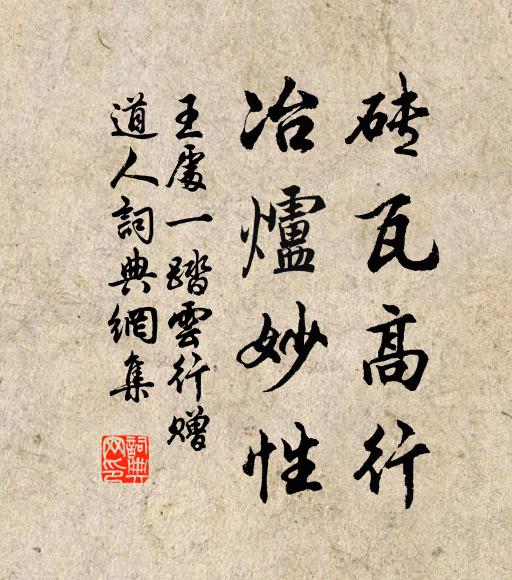 砖瓦高行
冶爐妙性
王處一踏雲行贈
道人詞典網集
詞典
网印